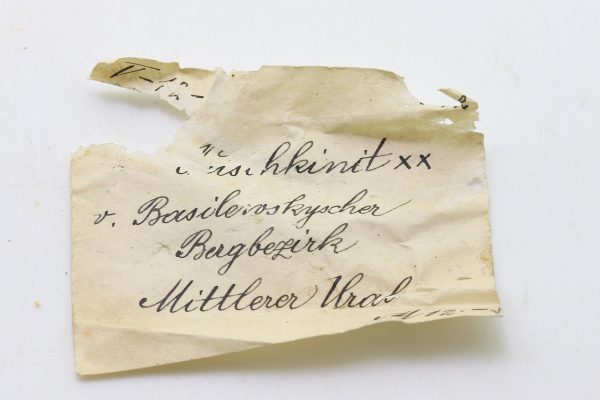 Puschkinit xx
v. Basilewskyscher
Bergbezirk
Mittlerer Ural